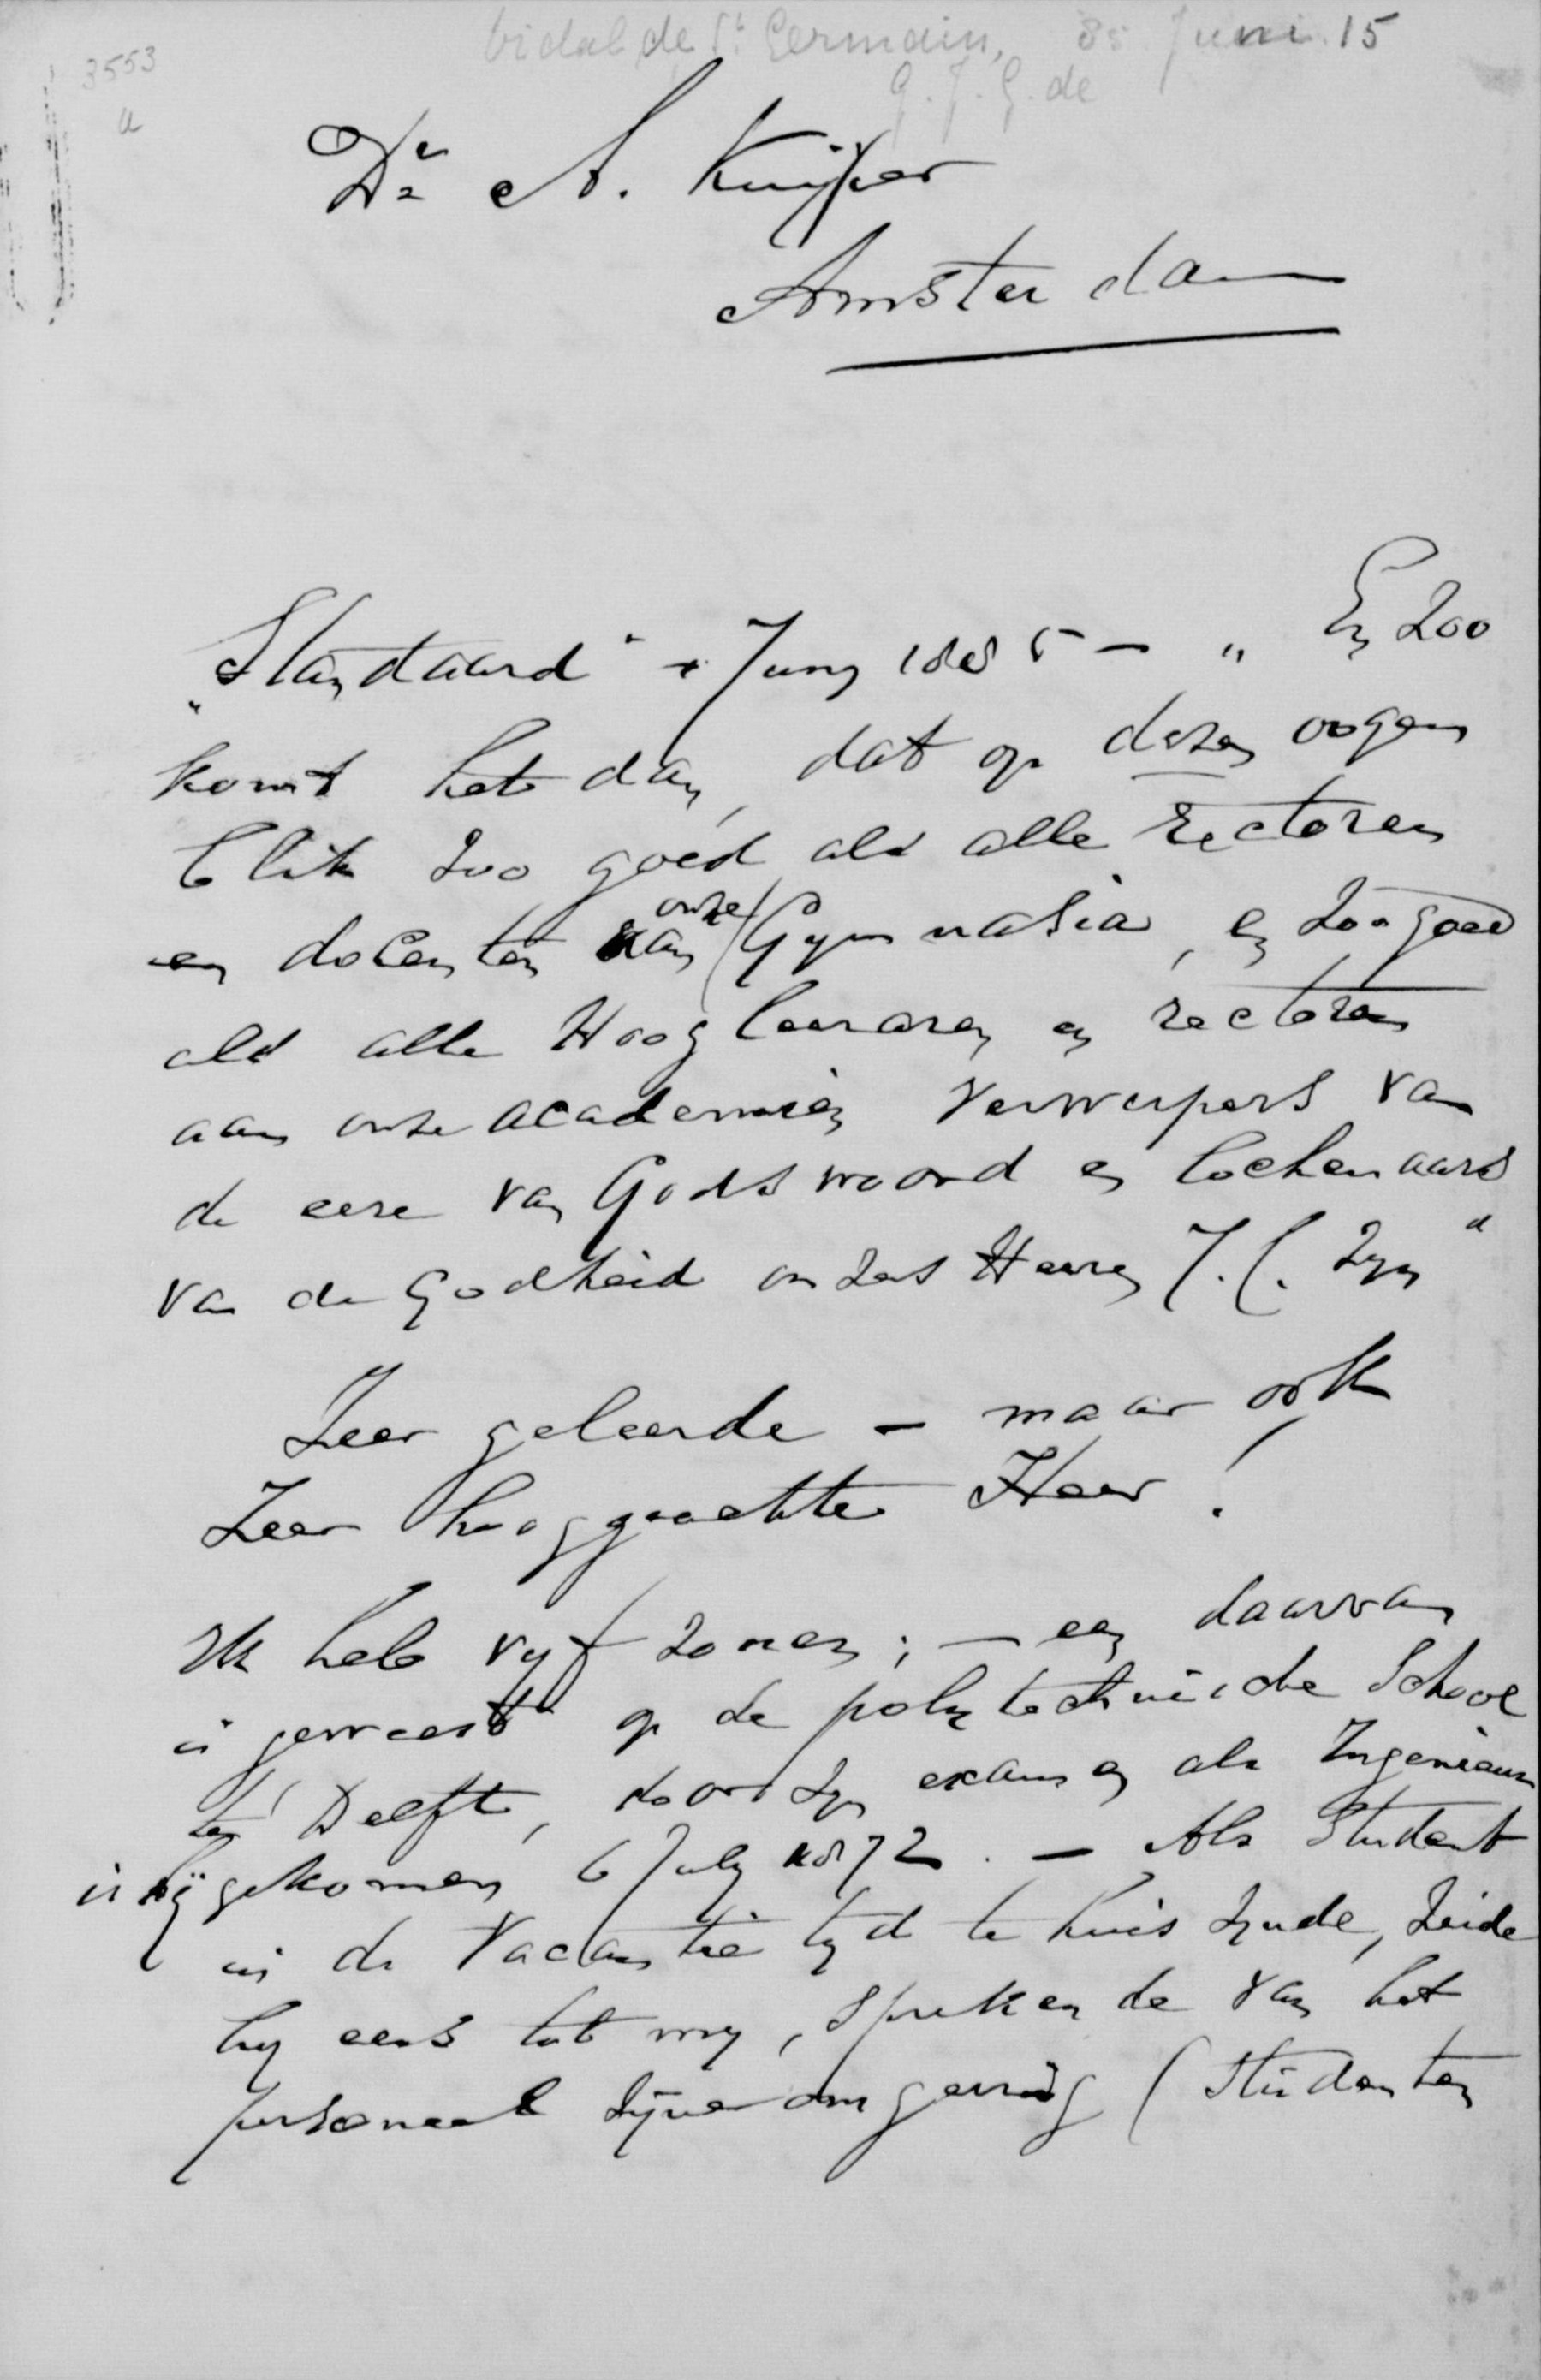 Vidal de St. Germain, 85 Juni 15
G. J. G. de
3553
a
Dr. A. Kuijper
Amsterdam
"Standaard" Juny 1885 — „ En zoo
komt het dan, dat op dezen oogen
blik zoo goed als alle rectoren
en docenten aan onze Gymnasia, en zoo goed
als alle Hoogleeraren en rectoren
aan onze academiën verwerpers van
de eere van Gods woord en loochenaars
van de Godheid onzes Heeren J. C. zyn"
Zeer geleerde — maar ook
Zeer hooggeachte Heer!
Ik heb vyf zonen; — een daarvan
is geweest op de polytechnische School
te Delft, door zyn examen als Ingenieur
is hij gekomen 6 July 1872. — Als Student
in de Vacantie tyd te huis zynde, zeide
hy eens tot my, sprekende van het
personeel zijner omgeving (Studenten